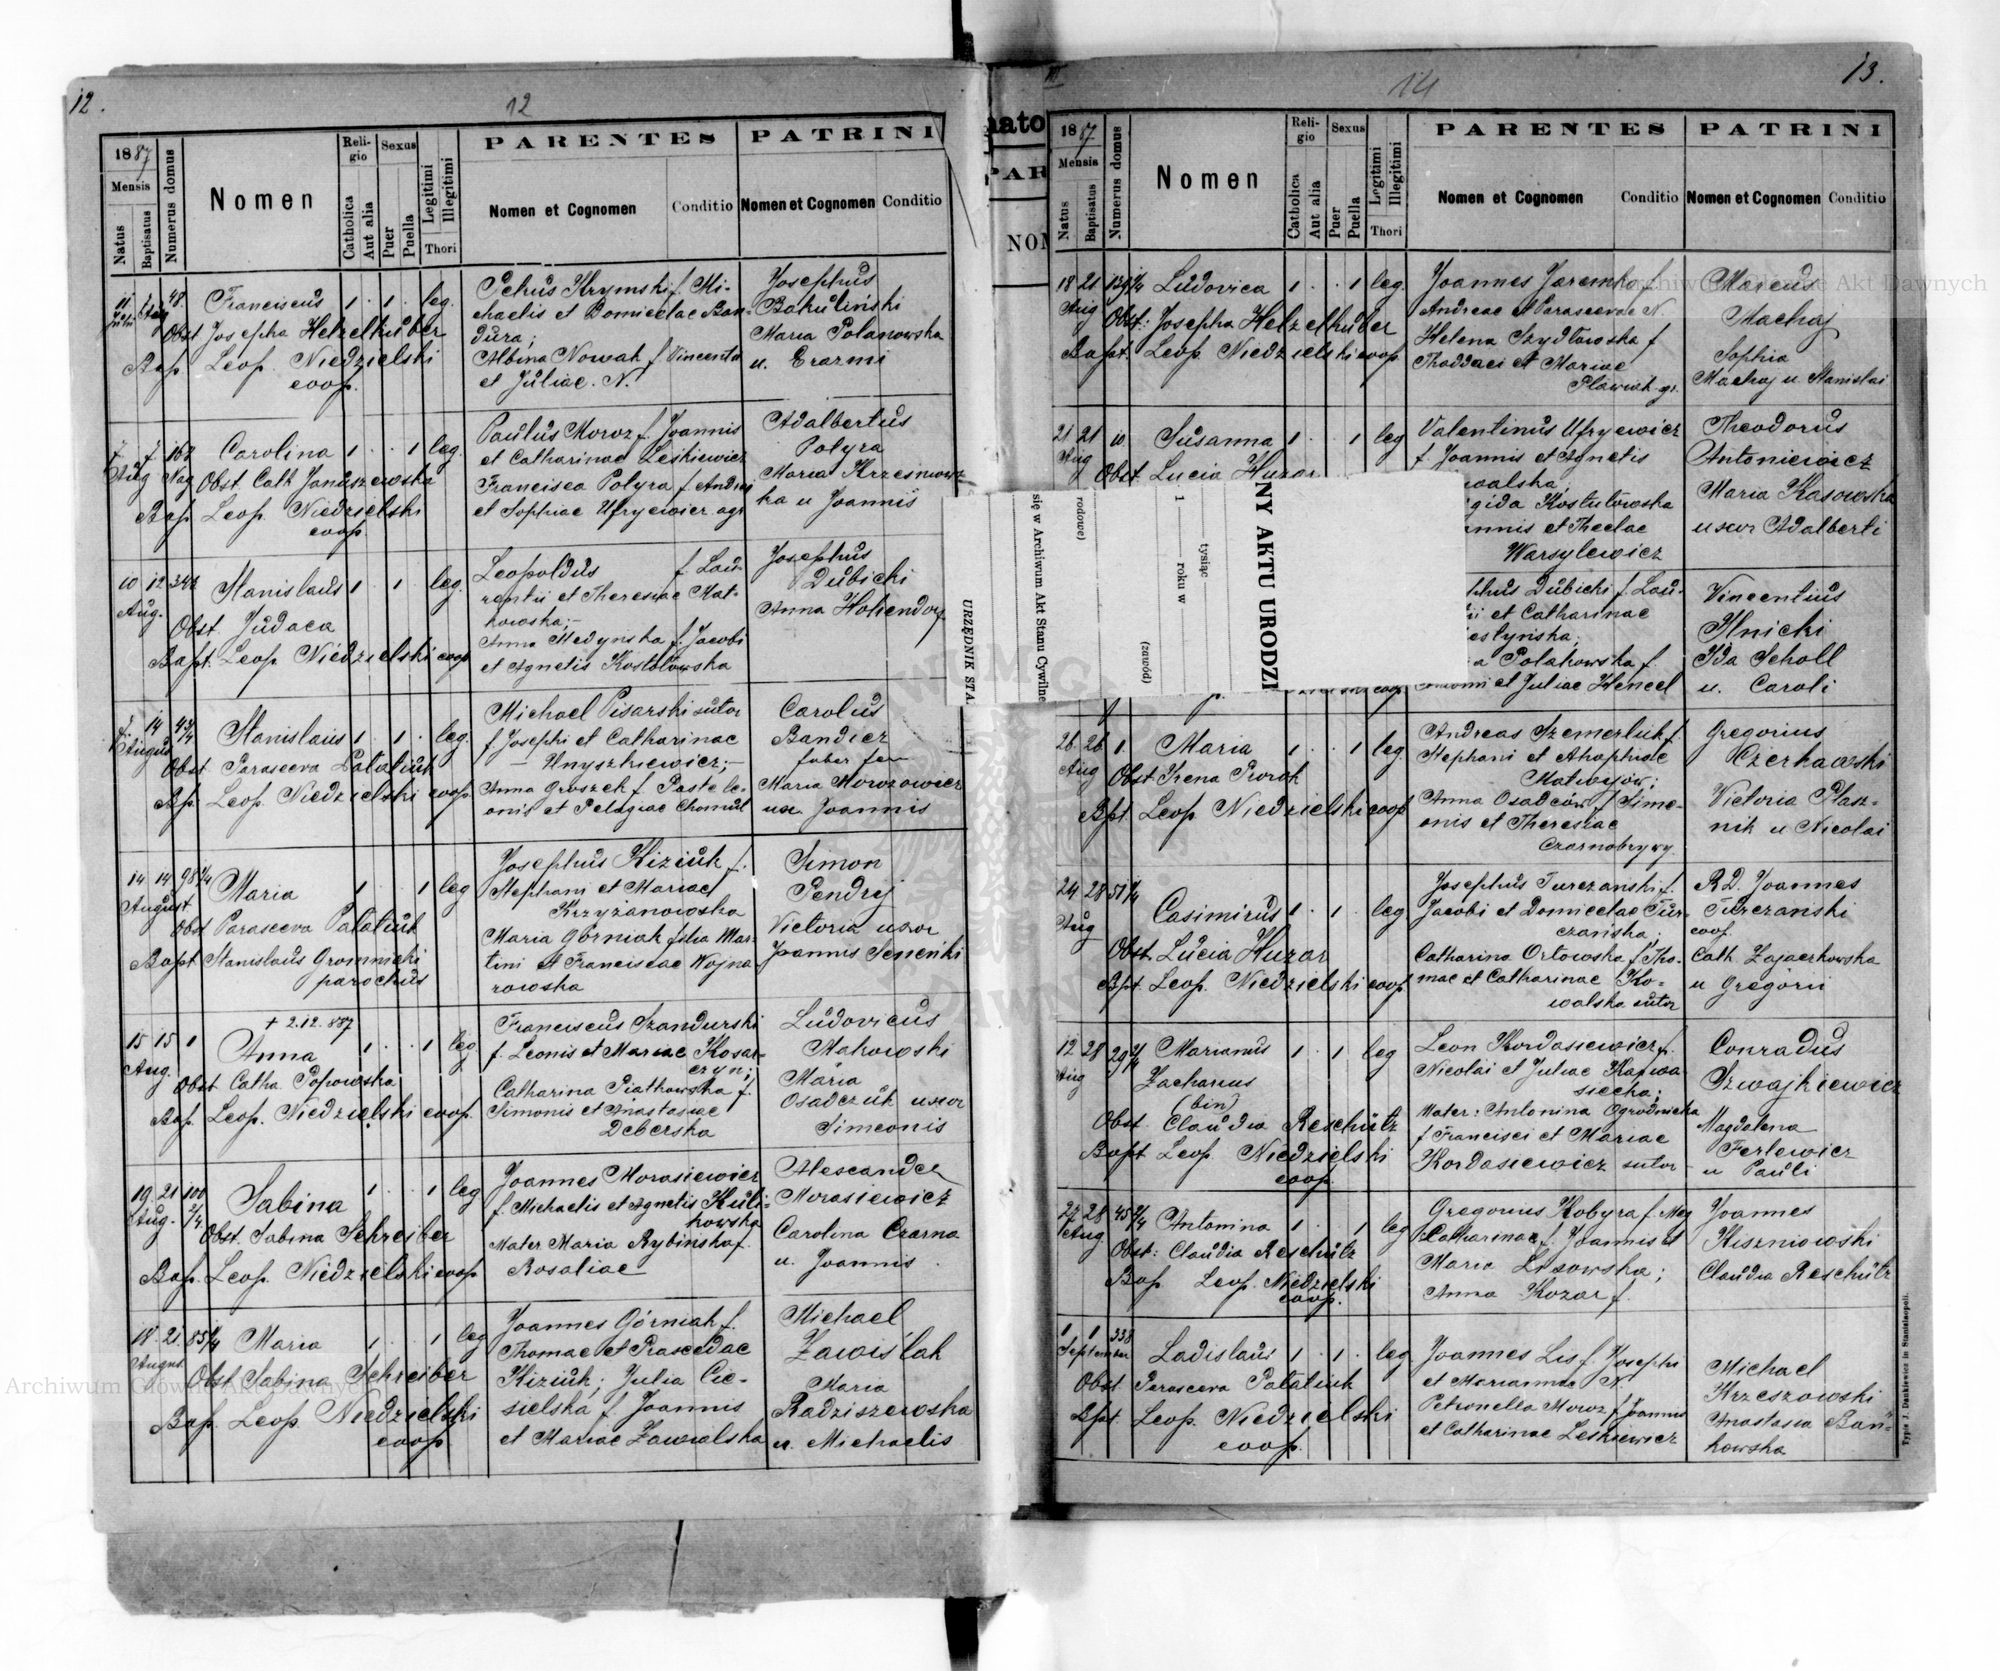 12.
12
1887
Mensis
Natus
Baptisatus
Numerus domus
Nomen
Religio
Catholica
Aut alia
Sexus
Puer
Puella
Legitimi
Illegitimi
Thori
PARENTES
Nomen et Cognomen
Conditio
PATRINI
Nomen et Cognomen
Conditio
48. Franciscus 1 . 1 . leg.
Obst Josepha Helzelhuber
Bap Leop. Niedzielski
coop.
Petrus Krymski f. Mi-
chaelis et Domicelae Ban-
dura;
Albina Nowak f Vincentii
et Juliae. N.
Josephus
Bakuliński
Maria Polanowska
u. Erazmi
7 7 162 Carolina 1 . . 1 leg.
Aug Nag Obst. Cath Januszewska
Bap Leop. Niedzielski
coop.
Paulus Moroz f. Joannis
et Catharinae Leskiewicz
Francisca Polyra f Andreae
et Sophiae Ufryewicz agr
Adalbertus
Polyra
Maria Krzesnows-
ka u Joannis
10 12 342 Stanislaus 1 . 1 . leg.
Aug.
Obst Judaea
Bapt. Leop. Niedzielski coop
Leopoldus f. Lau-
rentii et Theresiae Mat-
kowska;-
Anna Medynska f. Jacobi
et Agnetis Kostolowska
Josephus
Dubicki
Anna Holiendory
14 43/4 Stanislaus 1 . 1 . leg.
August
Obst Parasceva Palatiuk
Bap. Leop. Niedzielski coop
Michael Pisarski sutor
f. Josephi et Catharinae
- Hnyszkiewicz;-
Anna Groszek f Panteле-
onis et Pelagiae Chomul
Carolus
Bandier
faber fer
Maria Morozowicz
ux. Joannis
14 14 98 1/4 Maria 1 . . 1 leg
August
Obst Parasceva Palatiuk
Bapt Stanislaus Gromnicki
parochus
Josephus Kiziuk f.
Stephani et Mariae
Krzyżanowska
Maria Górniak filia Mar-
tini et Franciscae Wojna
rowska
Simon
Pendrej
Victoria uxor
Joannis Sesieński
+ 2.12.887
15 15 1 Anna 1 . . 1 leg
Aug.
Obst Catha. Popowska
Bap. Leop. Niedzielski coop.
Franciscus Szandurski
f. Leonis et Mariae Kosar-
czyn;
Catharina Piatkowska f.
Simonis et Anastasiae
Deberska
Ludovicus
Makowski
Maria
Osadczuk uxor
Simeonis
19 21 100 2/4 Sabina 1 . . 1 leg
Aug.
Obst. Sabina Schreiber
Bap. Leop. Niedzielski coop
Joannes Morasiewicz
f. Michaelis et Agnetis Kuli-
kowska
Mater Maria Rybinska f.
Rosaliae
Alexander
Morasiewicz
Carolina Czarna
u. Joannis.
18 21 85 1/4 Maria 1 . . 1 leg
August
Obst Sabina Schreiber
Bap. Leop. Niedzielski
coop
Joannes Górniak f.
Thomae et Praxedae
Kiziuk; Julia Cie-
sielska f Joannis
et Mariae Zawalska
Michael
Zawiślak
Maria
Radziszewska
u. Michaelis
nato
PAR
NOM
13.
14
1887
Mensis
Natus
Baptisatus
Numerus domus
Nomen
Religio
Catholica
Aut alia
Sexus
Puer
Puella
Legitimi
Illegitimi
Thori
PARENTES
Nomen et Cognomen
Conditio
PATRINI
Nomen et Cognomen
Conditio
18 21 Ludovica 1 . . 1 leg.
Aug Obst: Josepha Helzelhuber
Bapt. Leop. Niedzielski coop
Joannes Jaremko f
Andreae et Parascevae N.
Helena Szydłowska f
Thaddaei et Mariae
Pławiak gr.
Marcus
Machaj
Sophia
Machaj u Stanislai
21 21 10. Susanna 1 . . 1 leg
Aug
Obst. Lucia Huzar
Valentinus Ufryewicz
f Joannis et Agnetis
walska,
gida Kostulowska
annis et Theclae
Warsylewicz
Theodorus
Antoniewicz
Maria Kasowska
uxor Adalberti
URZĘDNIK STA
się w Archiwum Akt Stanu Cywilne
rodowe)
1 roku w
tysiąc
(zawód)
NY AKTU URODZI
phus Dubicki f. Lau-
ii et Catharinae
estyńska,
a Polakowska f.
et Juliae Hencel
Vincentius
Ilnicki
Ida Scholl
u. Caroli
26 26 1. Maria 1 . . 1 leg.
Aug Obst Irena Prorok
Bpt Leop Niedzielski coop
Andreas Szemerluk f.
Stephani et Ahaphiae
Matwejów;
Anna Osadców f Sime-
onis et Theresiae
Czarnobrywy.
Gregorius
Czerkawski
Victoria Płasz-
nik u Nicolai
24 28 51 1/4 Casimirus 1 . 1 . leg.
Aug
Obst. Lucia Huzar
Bpt Leop. Niedzielski coop
Josephus Turczanski f.
Jacobi et Domicelae Tur-
czańska;
Catharina Orłowska f Tho-
mae et Catharinae Ko-
walska sutor
RD. Joannes
Turczanski
coop.
Cath. Zajaczkowska
u Gregorii
12 28 29 Marianus 1 . 1 . leg
Aug Zacharius
(bin)
Obst. Claudia Reschütz
Bapt Leop Niedzielski
coop
Leon Kordasiewicz f.
Nicolai et Juliae Karwa-
siecka;
Mater: Antonina Ogrodnicka
f Francisci et Mariae
Kordasiewicz sutor
Conradus
Szwajkiewicz
Magdalena
Ferlewicz
u Pauli
27 28 45 2/4 Antonina 1 . . 1 leg
Aug
Obst: Claudia Reschütz
Bap Leop. Niedzielski
coop.
Gregorius Kobyra f.
Catharinae f. Joannis et
Maria Lisowska;
Anna Kozar f.
Joannes
Kiszniowski
Claudia Reschütz
1 1 338 Ladislaus 1 . 1 . leg
September
Obst Parasceva Palatiuk
Bpt. Leop. Niedzielski
coop.
Joannes Lis f. Josephi
et Mariannae N.
Petronella Moroz f Joannis
et Catharinae Leskiewicz
Michael
Krzeszowski
Anastasia Ban-
kowska
Typis J. Dankiewicz in Stanislaopoli.
Archiwum Główne Akt Dawnych
Archiwum Główne Akt Dawnych